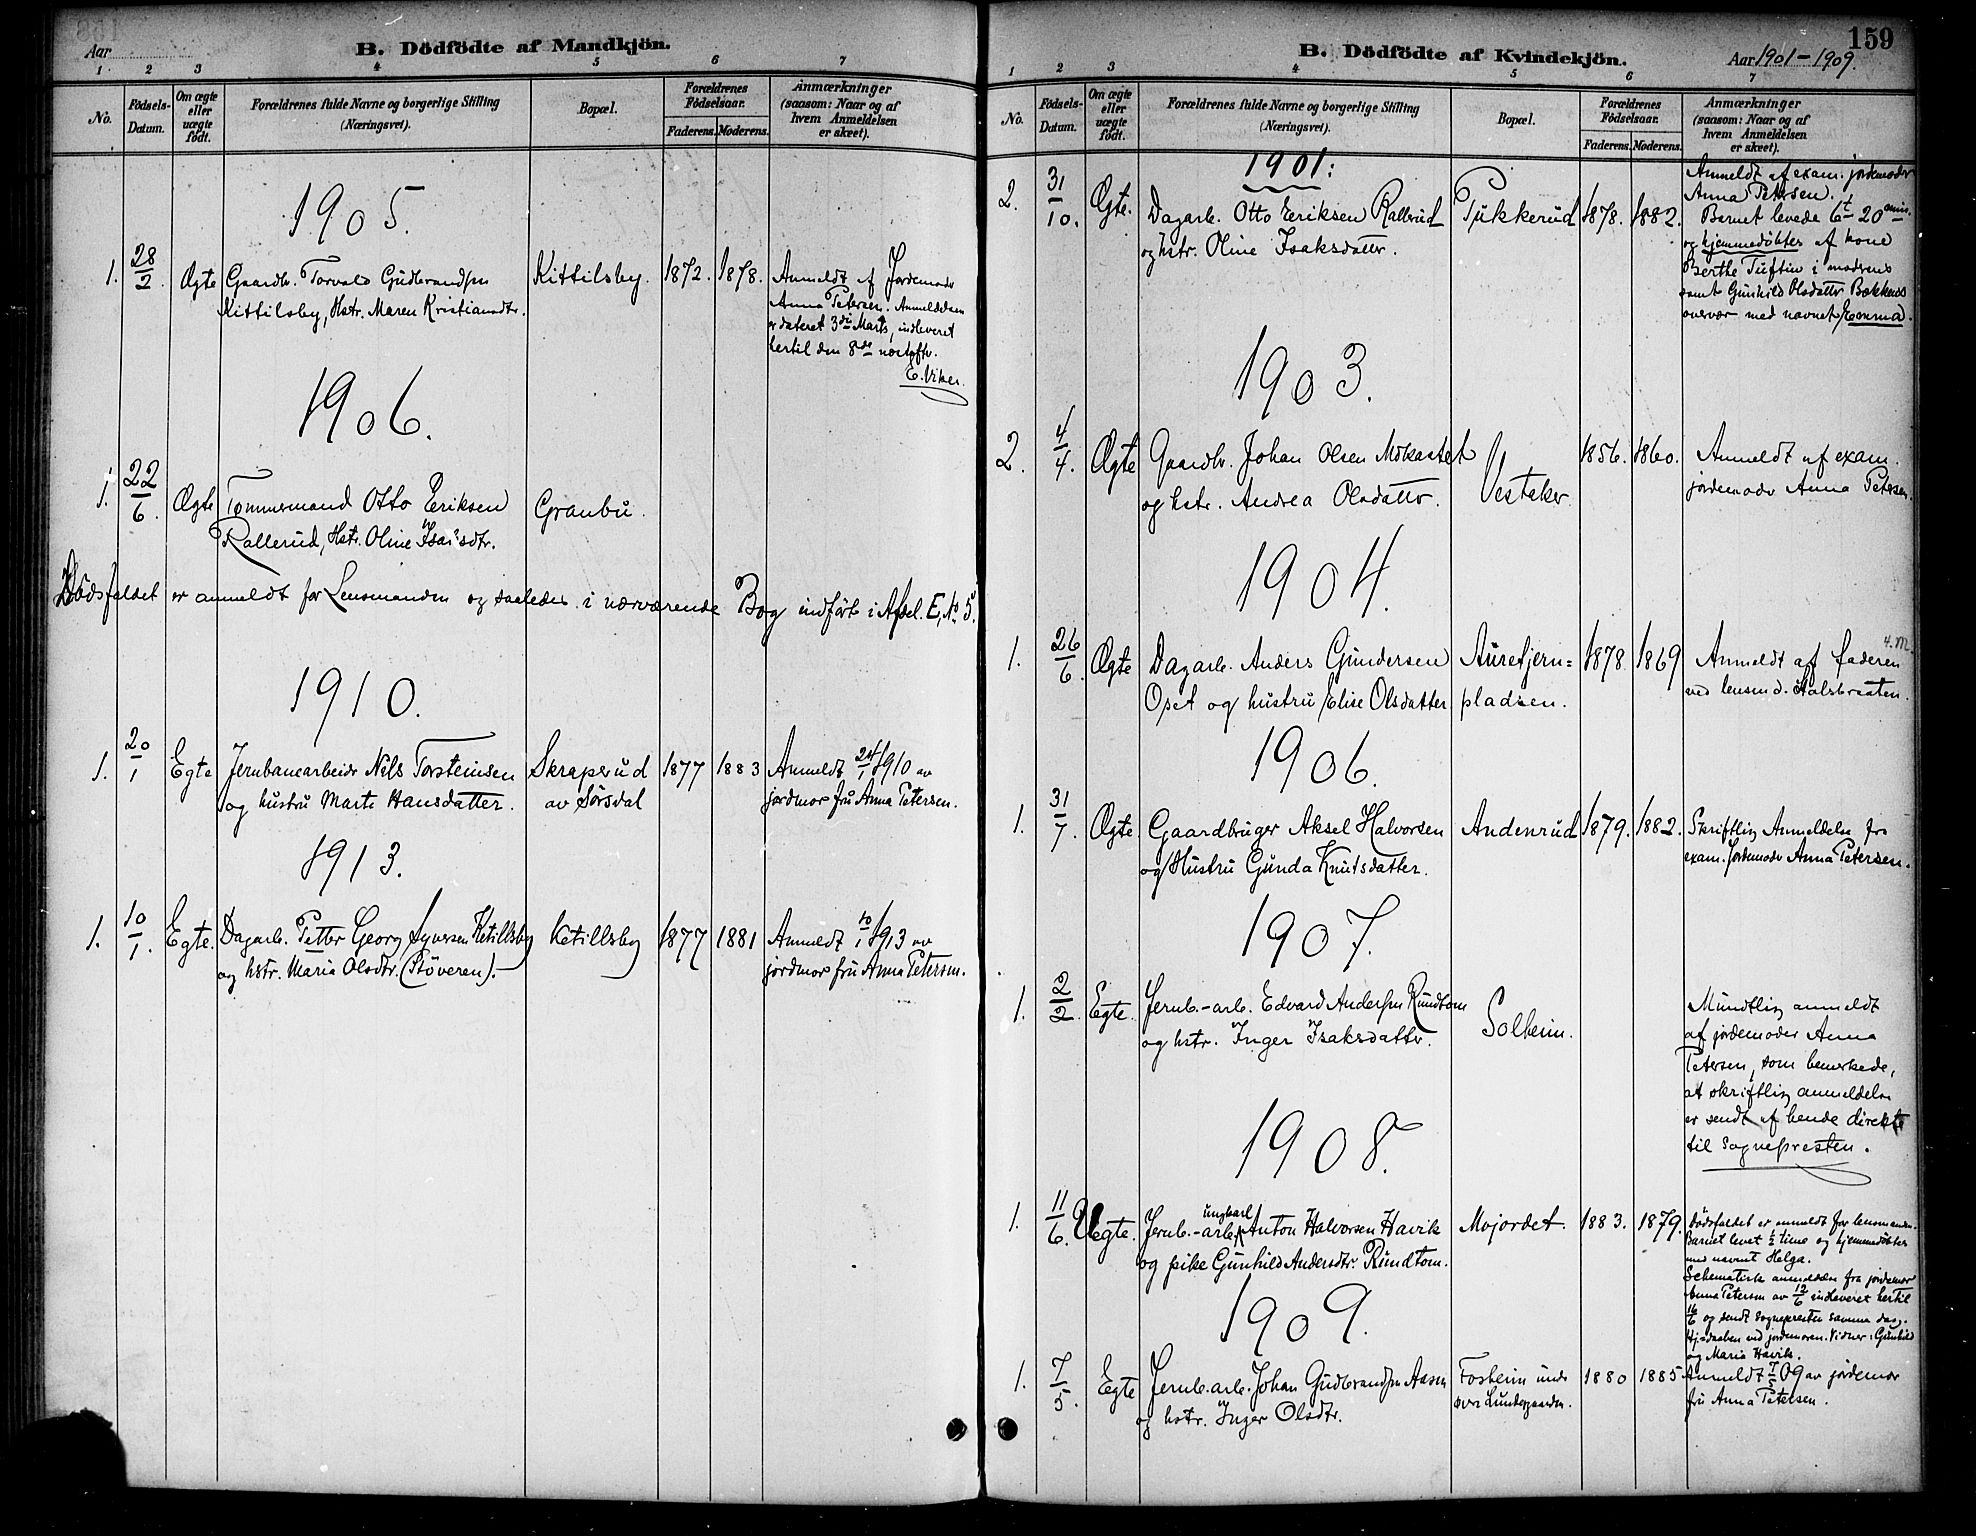 Aar
B. Dödfödte af Mandkjön.
1 2 3 4 5 6 7
No.
Födsels-Datum.
Om ægte eller uægte födt.
Forældrenes fulde Navne og borgerlige Stilling
(Næringsvei).
Bopæl.
Forældrenes Födselsaar.
Faderens. Moderens.
Anmærkninger
(saasom: Naar og af
hvem Anmeldelsen
er skeet).
1905.
1. 28/2 Ægte Gaardbr. Torvald Gudbrandsen Kittilsby. 1872. 1878. Anmeldt af Jordemoder
Kittilsby, Hstr. Maren Kristiansdtr. Anna Petersen. Anmeldelsen
er dateret 3die Marts, indleveret
hertil den 8de næstefter.
E. Viker.
1906.
1. 22/6 Ægte Tømmermand Otto Eriksen Granbu.
Rallerud, Hstr. Oline Isaksdtr.
Dødsfaldet er anmeldt for Lensmanden og saaledes i nærværende Bog indført i Afdel. E, No 5.
1910.
1. 20/1 Egte Jernbanearbeider Nils Torsteinsen Skraperud 1877 1883 Anmeldt 24/1 1910 av
og hustru Marte Hansdatter. av Sørsdal jordmor fru Anna Petersen.
1913.
1. 10/1. Egte. Dagarb. Petter Georg Syversen Ketillsby Ketillsby 1877 1881 Anmeldt 10/1 1913 av
og hstr. Maria Olsdtr. (Støveren). jordmor fru Anna Petersen.
B. Dödfödte af Kvindekjön.
159
Aar 1901-1909.
1 2 3 4 5 6 7
No.
Födsels-Datum.
Om ægte eller uægte födt.
Forældrenes fulde Navne og borgerlige Stilling
(Næringsvei).
Bopæl.
Forældrenes Födselsaar.
Faderens. Moderens.
Anmærkninger
(saasom: Naar og af
hvem Anmeldelsen
er skeet).
1901:
2. 31/10. Ægte. Dagarb. Otto Eriksen Rallerud Pukkerud 1878. 1882. Anmeldt af exam. jordemoder
og hstr. Oline Isaksdatter. Anna Petersen.
Barnet levede 6t 20 min.
og hjemmedøbtes af kone
Berthe Tuftin i moderens
samt Gunhild Olsdatter Bækkens
overvær med navnet Emma.
1903.
2. 4/4. Ægte Gaardbr. Johan Olsen Mokastet Vesteker 1856. 1860. Anmeldt af exam.
og hstr. Andrea Olsdatter. jordemoder Anna Petersen.
1904.
1. 26/6. Ægte Dagarb. Anders Gundersen Auretjern= 1878 1869 Anmeldt af faderen 4. M.
Opet og hustru Elise Olsdatter pladsen. ved lensmd. Halsbraaten.
1906.
1. 31/7. Ægte Gaardbruger Aksel Halvorsen Andenrud 1879. 1882. Skriftlig Anmeldelse fra
og Hustru Gunda Knutsdatter. exam. Jordemoder Anna Petersen.
1907.
1. 2/2. Egte. Jernb.-arb. Edvard Andersen Rundtom Solheim. Mundtlig anmeldt
og hstr. Inger Isaksdatter. af jordemoder Anna
Petersen, som bemerkede,
at skriftlig anmeldelse
er sendt af hende direkte
til sognepresten.
1908.
1. 11/6. Uegte. Jernb.-arb. ungkarl Anton Halvorsen Havik Mojordet. 1883. 1879. Dødsfaldet er anmeldt for lensmanden.
og pike Gunhild Andersdtr. Rundtom. Barnet levet 1/2 time og hjemmedøbtes
med navnet Helga.
Schematisk anmeldelse fra jordemor
Anna Petersen av 12/6 indleveret hertil
16/6 og sendt sognepresten samme dag.
Hj.-daaben ved jordemoren. Vidner: Gunhild
og Maria Havik.
1909.
1. 7/5. Egte Jernb.arb. Johan Gudbrandsen Aasen Fosheim under 1880 1885 Anmeldt 7/5 09 av jordemor
og hstr. Inger Olsdtr. øvre Lundergaarden. fru Anna Petersen.